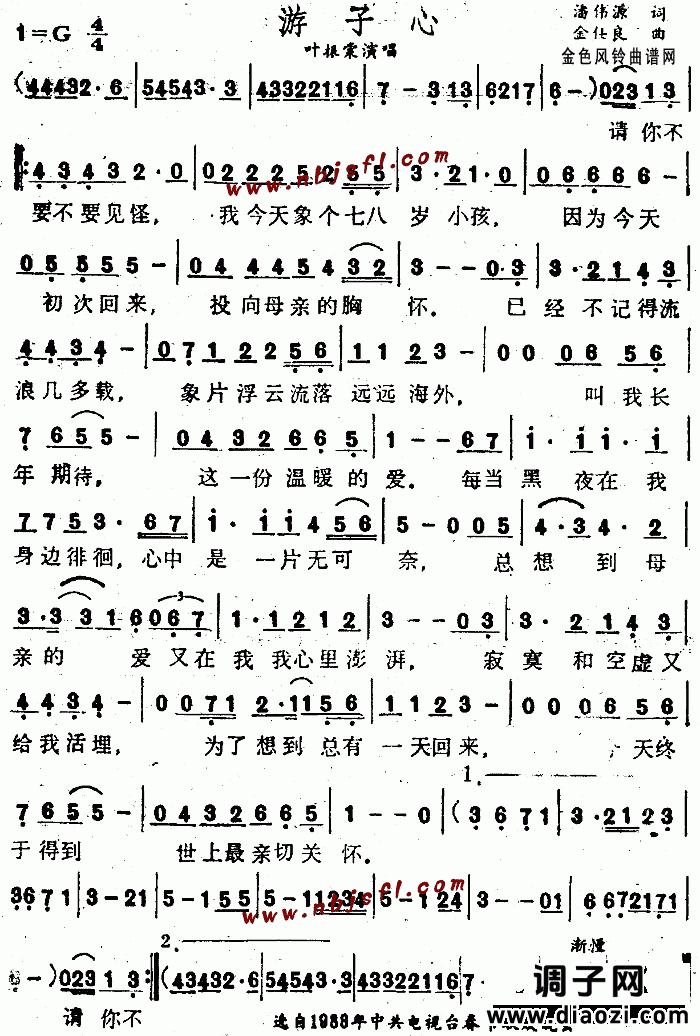 游子心
潘伟源 词
1=G 4/4
金仕良 曲
叶振棠演唱
金色风铃曲谱网
(44432·6 54543·3 43322116 7-3 13 6217 6-) 0231 3
请你不
43432·0 022252 55 3·21·0 06666 6-
www.nbjsfl.com
要不要见怪， 我今天象个七八 岁 小孩， 因为今天
05555- 04 4454 32 3--0·3 3·2143
初次回来， 投向母亲的胸 怀。 已经 不记得流
4434- 071 22556 1123- 00 06 56
浪几多载， 象片浮云流落 远远海外， 叫我长
7655- 0432665 1--67 i·ii·i
年期待， 这一份温暖的爱。 每当黑 夜在我
7753·67 i·ii456 5-005 4·34·2
身边徘徊，心中 是 一片无可 奈， 总想到母
3·3 31 6067 1·1212 3--03 3·2143
亲的 爱又在我 我心里澎湃， 寂寞和空虚又
4434- 0071 2·1156 1123- 00 06 56
给我活埋， 为了想到总有 一天回来， 天终
1.
7655- 0432665 1--0 (3671 3·2123
于得到 世上最亲切关 怀。
3671 3-21 5-155 5-11234 5-124 3--01 6672171
www.nbjsfl.com
2.
渐慢
6-) 0231 3 :|| (43432·6 54543·3 43322116 7
请你不
选自1988年中央电视台春
调子网
www.diaozi.com